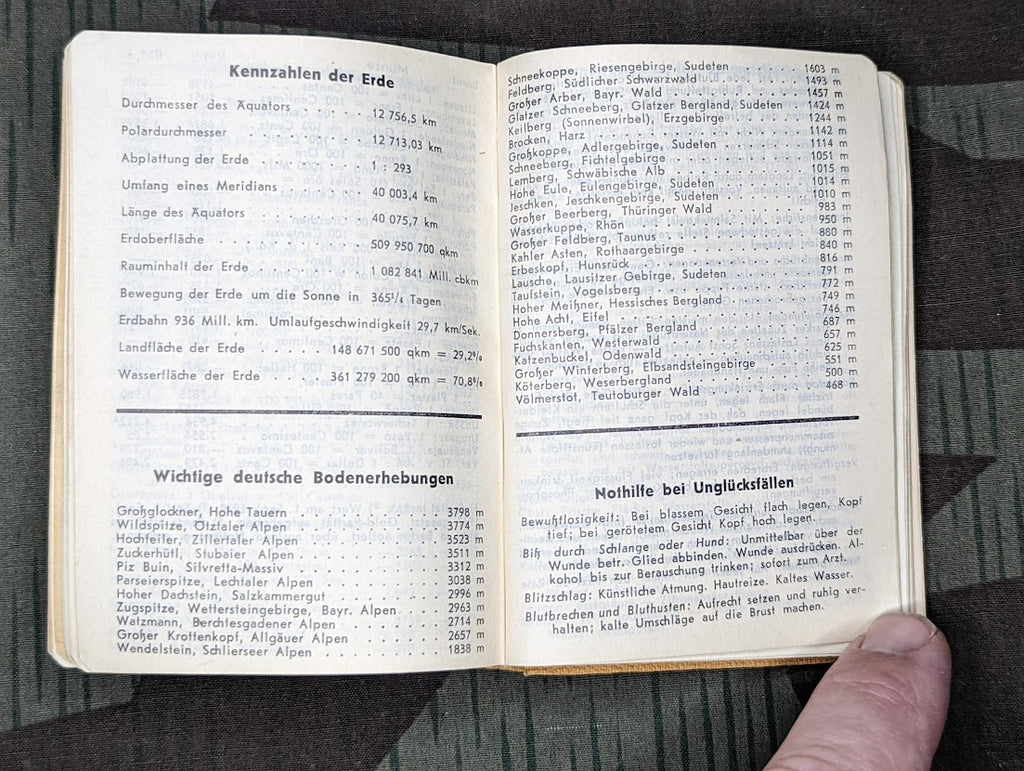 Kennzahlen der Erde
Durchmesser des Äquators . . . . . 12 756,5 km
Polardurchmesser . . . . . . . 12 713,03 km
Abplattung der Erde . . . . . . 1 : 293
Umfang eines Meridians . . . . . 40 003,4 km
Länge des Äquators . . . . . . 40 075,7 km
Erdoberfläche . . . . . . . . 509 950 700 qkm
Rauminhalt der Erde . . . . . . 1 082 841 Mill. cbkm
Bewegung der Erde um die Sonne in 365¼ Tagen
Erdbahn 936 Mill. km. Umlaufgeschwindigkeit 29,7 km/Sek.
Landfläche der Erde . . . . . 148 671 500 qkm = 29,2%
Wasserfläche der Erde . . . . 361 279 200 qkm = 70,8%
Wichtige deutsche Bodenerhebungen
Großglockner, Hohe Tauern . . . . . . . . 3798 m
Wildspitze, Ötztaler Alpen . . . . . . . . 3774 m
Hochfeiler, Zillertaler Alpen . . . . . . . 3523 m
Zuckerhütl, Stubaier Alpen . . . . . . . . 3511 m
Piz Buin, Silvretta-Massiv . . . . . . . . 3312 m
Parseierspitze, Lechtaler Alpen . . . . . . 3038 m
Hoher Dachstein, Salzkammergut . . . . . 2996 m
Zugspitze, Wettersteingebirge, Bayr. Alpen . . . 2963 m
Watzmann, Berchtesgadener Alpen . . . . . 2714 m
Großer Krottenkopf, Allgäuer Alpen . . . . . 2657 m
Wendelstein, Schlierseer Alpen . . . . . . 1838 m
Schneekoppe, Riesengebirge, Sudeten . . . . . 1603 m
Feldberg, Südlicher Schwarzwald . . . . . . 1493 m
Großer Arber, Bayr. Wald . . . . . . . . 1457 m
Glatzer Schneeberg, Glatzer Bergland, Sudeten . . 1424 m
Keilberg (Sonnenwirbel), Erzgebirge . . . . . 1244 m
Brocken, Harz . . . . . . . . . . . 1142 m
Großkoppe, Adlergebirge, Sudeten . . . . . . 1114 m
Schneeberg, Fichtelgebirge . . . . . . . . 1051 m
Lemberg, Schwäbische Alb . . . . . . . . 1015 m
Hohe Eule, Eulengebirge, Sudeten . . . . . . 1014 m
Jeschken, Jeschkengebirge, Sudeten . . . . . 1010 m
Großer Beerberg, Thüringer Wald . . . . . . 983 m
Wasserkuppe, Rhön . . . . . . . . . . 950 m
Großer Feldberg, Taunus . . . . . . . . 880 m
Kahler Asten, Rothaargebirge . . . . . . . 840 m
Erbeskopf, Hunsrück . . . . . . . . . . 816 m
Lausche, Lausitzer Gebirge, Sudeten . . . . . 791 m
Taufstein, Vogelsberg . . . . . . . . . 772 m
Hoher Meißner, Hessisches Bergland . . . . . 749 m
Hohe Acht, Eifel . . . . . . . . . . . 746 m
Donnersberg, Pfälzer Bergland . . . . . . . 687 m
Fuchskanten, Westerwald . . . . . . . . 657 m
Katzenbuckel, Odenwald . . . . . . . . . 625 m
Großer Winterberg, Elbsandsteingebirge . . . . 551 m
Köterberg, Weserbergland . . . . . . . . 500 m
Völmerstot, Teutoburger Wald . . . . . . . 468 m
Nothilfe bei Unglücksfällen
Bewußtlosigkeit: Bei blassem Gesicht flach legen, Kopf
tief; bei gerötetem Gesicht Kopf hoch legen.
Biß durch Schlange oder Hund: Unmittelbar über der
Wunde betr. Glied abbinden. Wunde ausdrücken. Al-
kohol bis zur Berauschung trinken; sofort zum Arzt.
Blitzschlag: Künstliche Atmung. Hautreize. Kaltes Wasser.
Blutbrechen und Bluthusten: Aufrecht setzen und ruhig ver-
halten; kalte Umschläge auf die Brust machen.